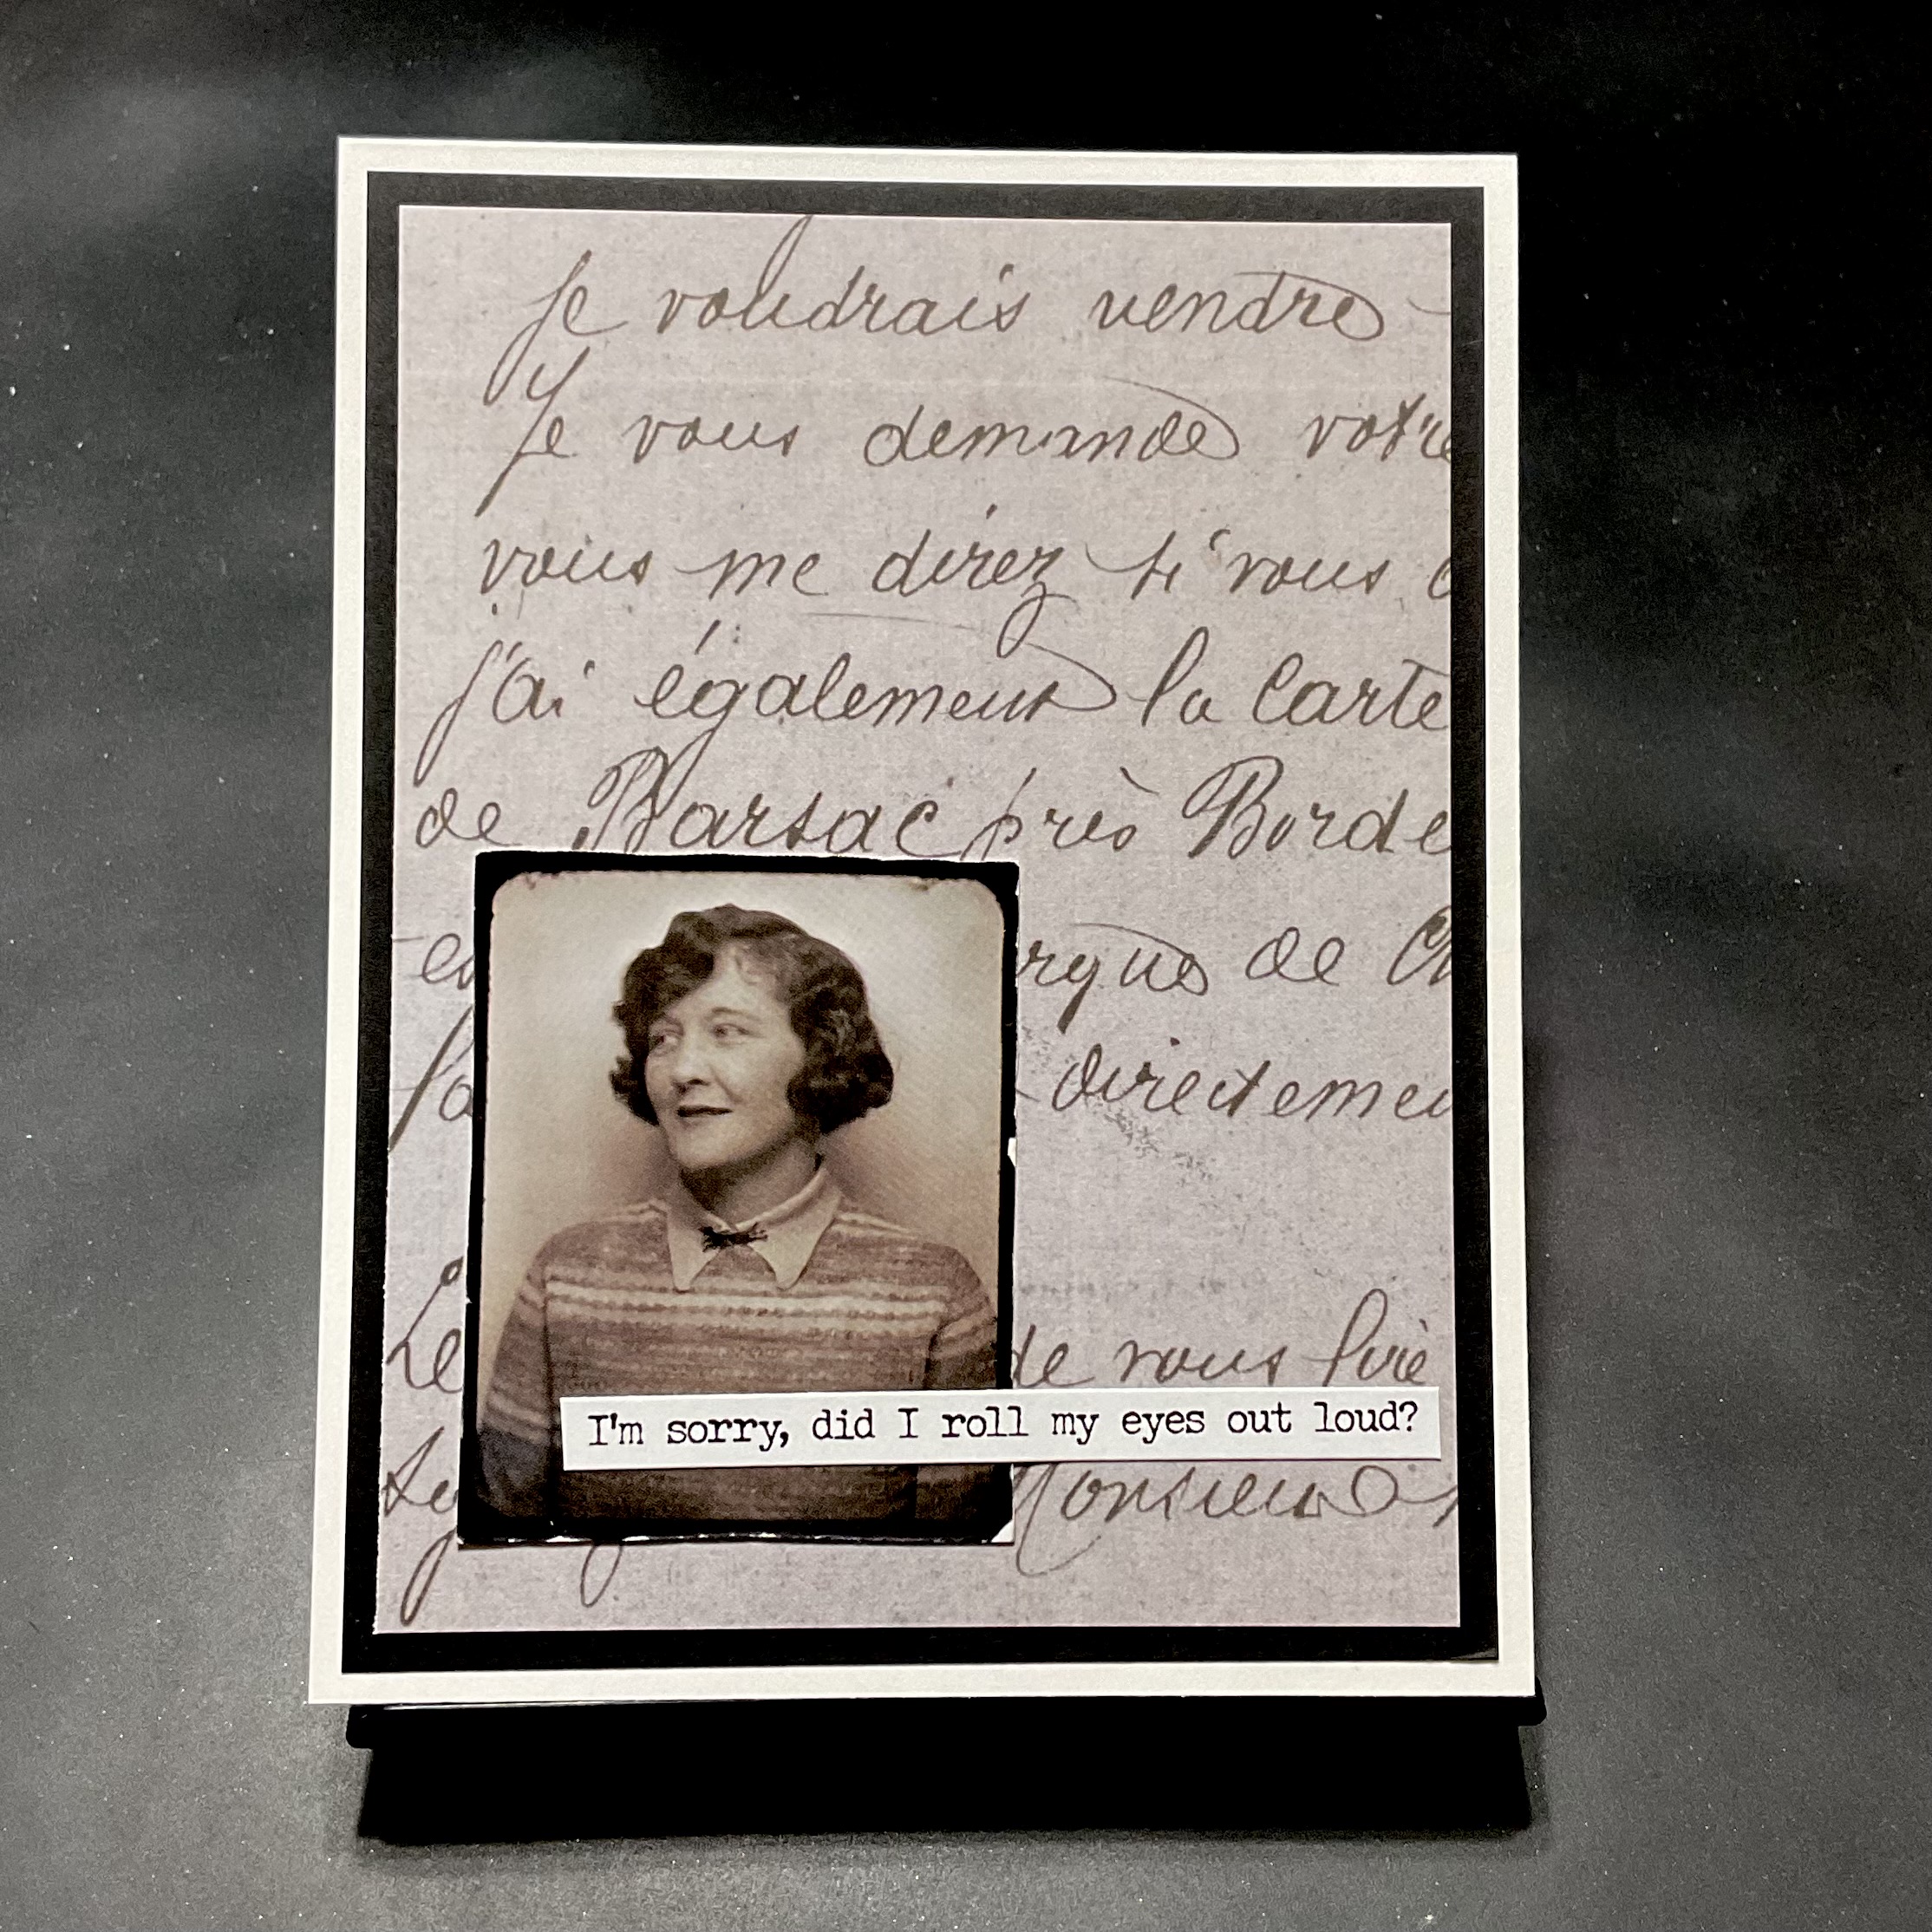 Je voudrais vendre
Je vous demande votre
vous me direz si vous
j'ai également la Carte
de Barsac près Borde
de
directemen
de vous lire
I'm sorry, did I roll my eyes out loud?
Monsieur